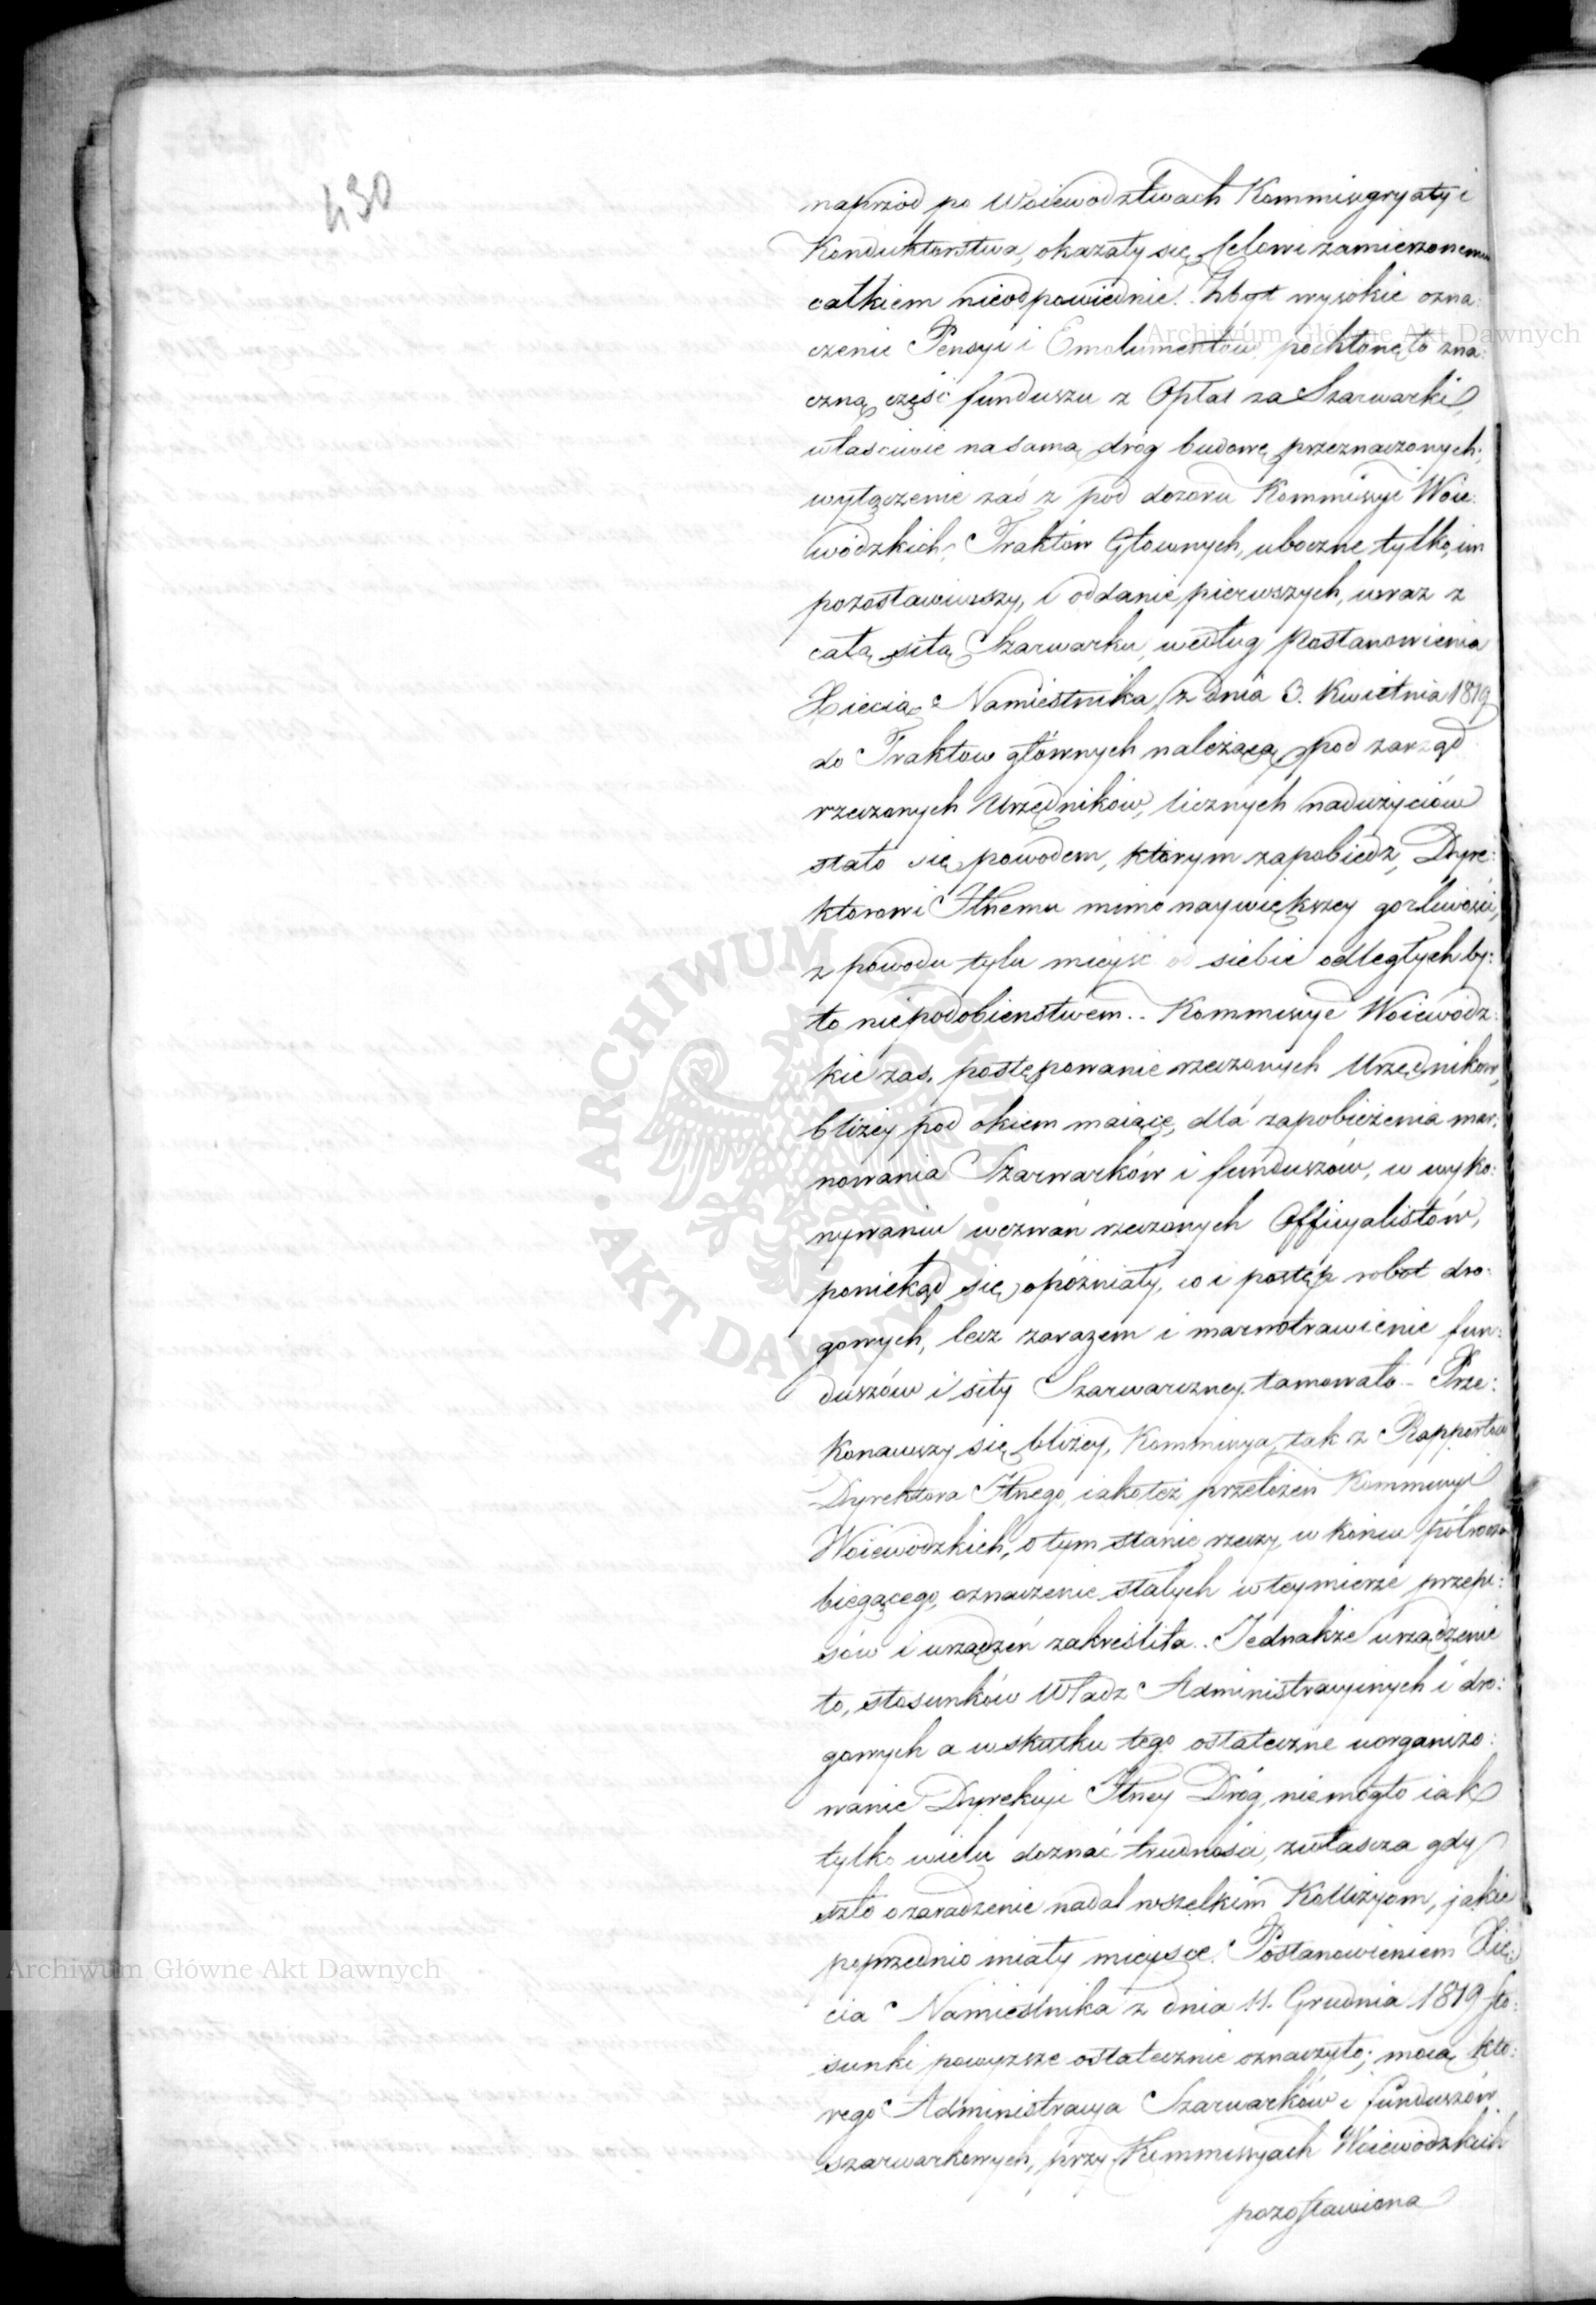 430
naprzód po Woiewodztwach Kommissyryaty i
Konduktorstwa, okazały się Celowi zamierzonemu
całkiem nieodpowiednie. Zbyt wysokie ozna:
czenie Pensyi i Emolumentów, pochłonęło zna:
czną część funduszu z Opłat za Szarwarki,
właściwie na samą dróg budowę przeznaczonych;
wyłączenie zaś z pod dozoru Kommissyi Woie:
wódzkich, Traktów Głownych, uboczne tylko im
pozostawiwszy, i oddanie pierwszych, wraz z
całą siłą Szarwarku, według Postanowienia
Xięcia Namiestnika, z dnia 3. Kwietnia 1819
do Traktow głównych należącą, pod zarząd
rzeczonych Urzędników, licznych nadużyciów
stało się powodem, którym zapobiedz, Dyre:
ktorowi Jlnemu mimo naywiększey gorliwości,
z powodu tylu mieysc od siebie odległych by:
ło niepodobieństwem. Kommissye Woiewódz:
kie zaś, postępowanie rzeczonych Urzędników,
bliżey pod okiem maiące, dla zapobieżenia mar:
nowania Szarwarków i funduszów, w wyko:
nywaniu wezwań rzeczonych Officyalistów,
poniekąd się opóźniały, co i postęp robot dro:
gowych, lecz zarazem i marnotrawienie fun:
duszów i siły Szarwarczney tamowało. Prze:
konawszy się bliżey, Kommissya, tak z Rapportów
Dyrektora Jlnego, iako też przełożeń Kommissyi
Woiewódzkich, o tym stanie rzeczy, w końcu półrocza
biegącego, oznaczenie stałych w tey mierze przepi:
sów i urządzeń zakreśliła. Jednakże urządzenie
to, stosunków Władz Administracyinych i dro:
gowych a w skutku tego ostateczne uorganizo:
wanie Dyrekcyi Jlney Dróg, nie mogło iak
tylko wielu doznać trudności, zwłaszcza gdy
szło o zaradzenie nadal wszelkim Kollizyom, jakie
poprzednio miały mieysce. Postanowieniem Xię:
cia Namiestnika z dnia 11. Grudnia 1819 sto:
sunki powyższe ostatecznie oznaczyło; mocą któ:
rego Administracya Szarwarków i funduszów
szarwarkowych, przy Kommissyach Woiewódzkich
pozostawiona
Archiwum Główne Akt Dawnych
Archiwum Główne Akt Dawnych
ARCHIWUM GŁÓWNE AKT DAWNYCH